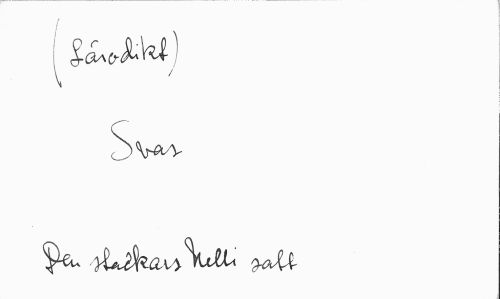 (Lärodikt)
Svar
Den stackars Nelli satt